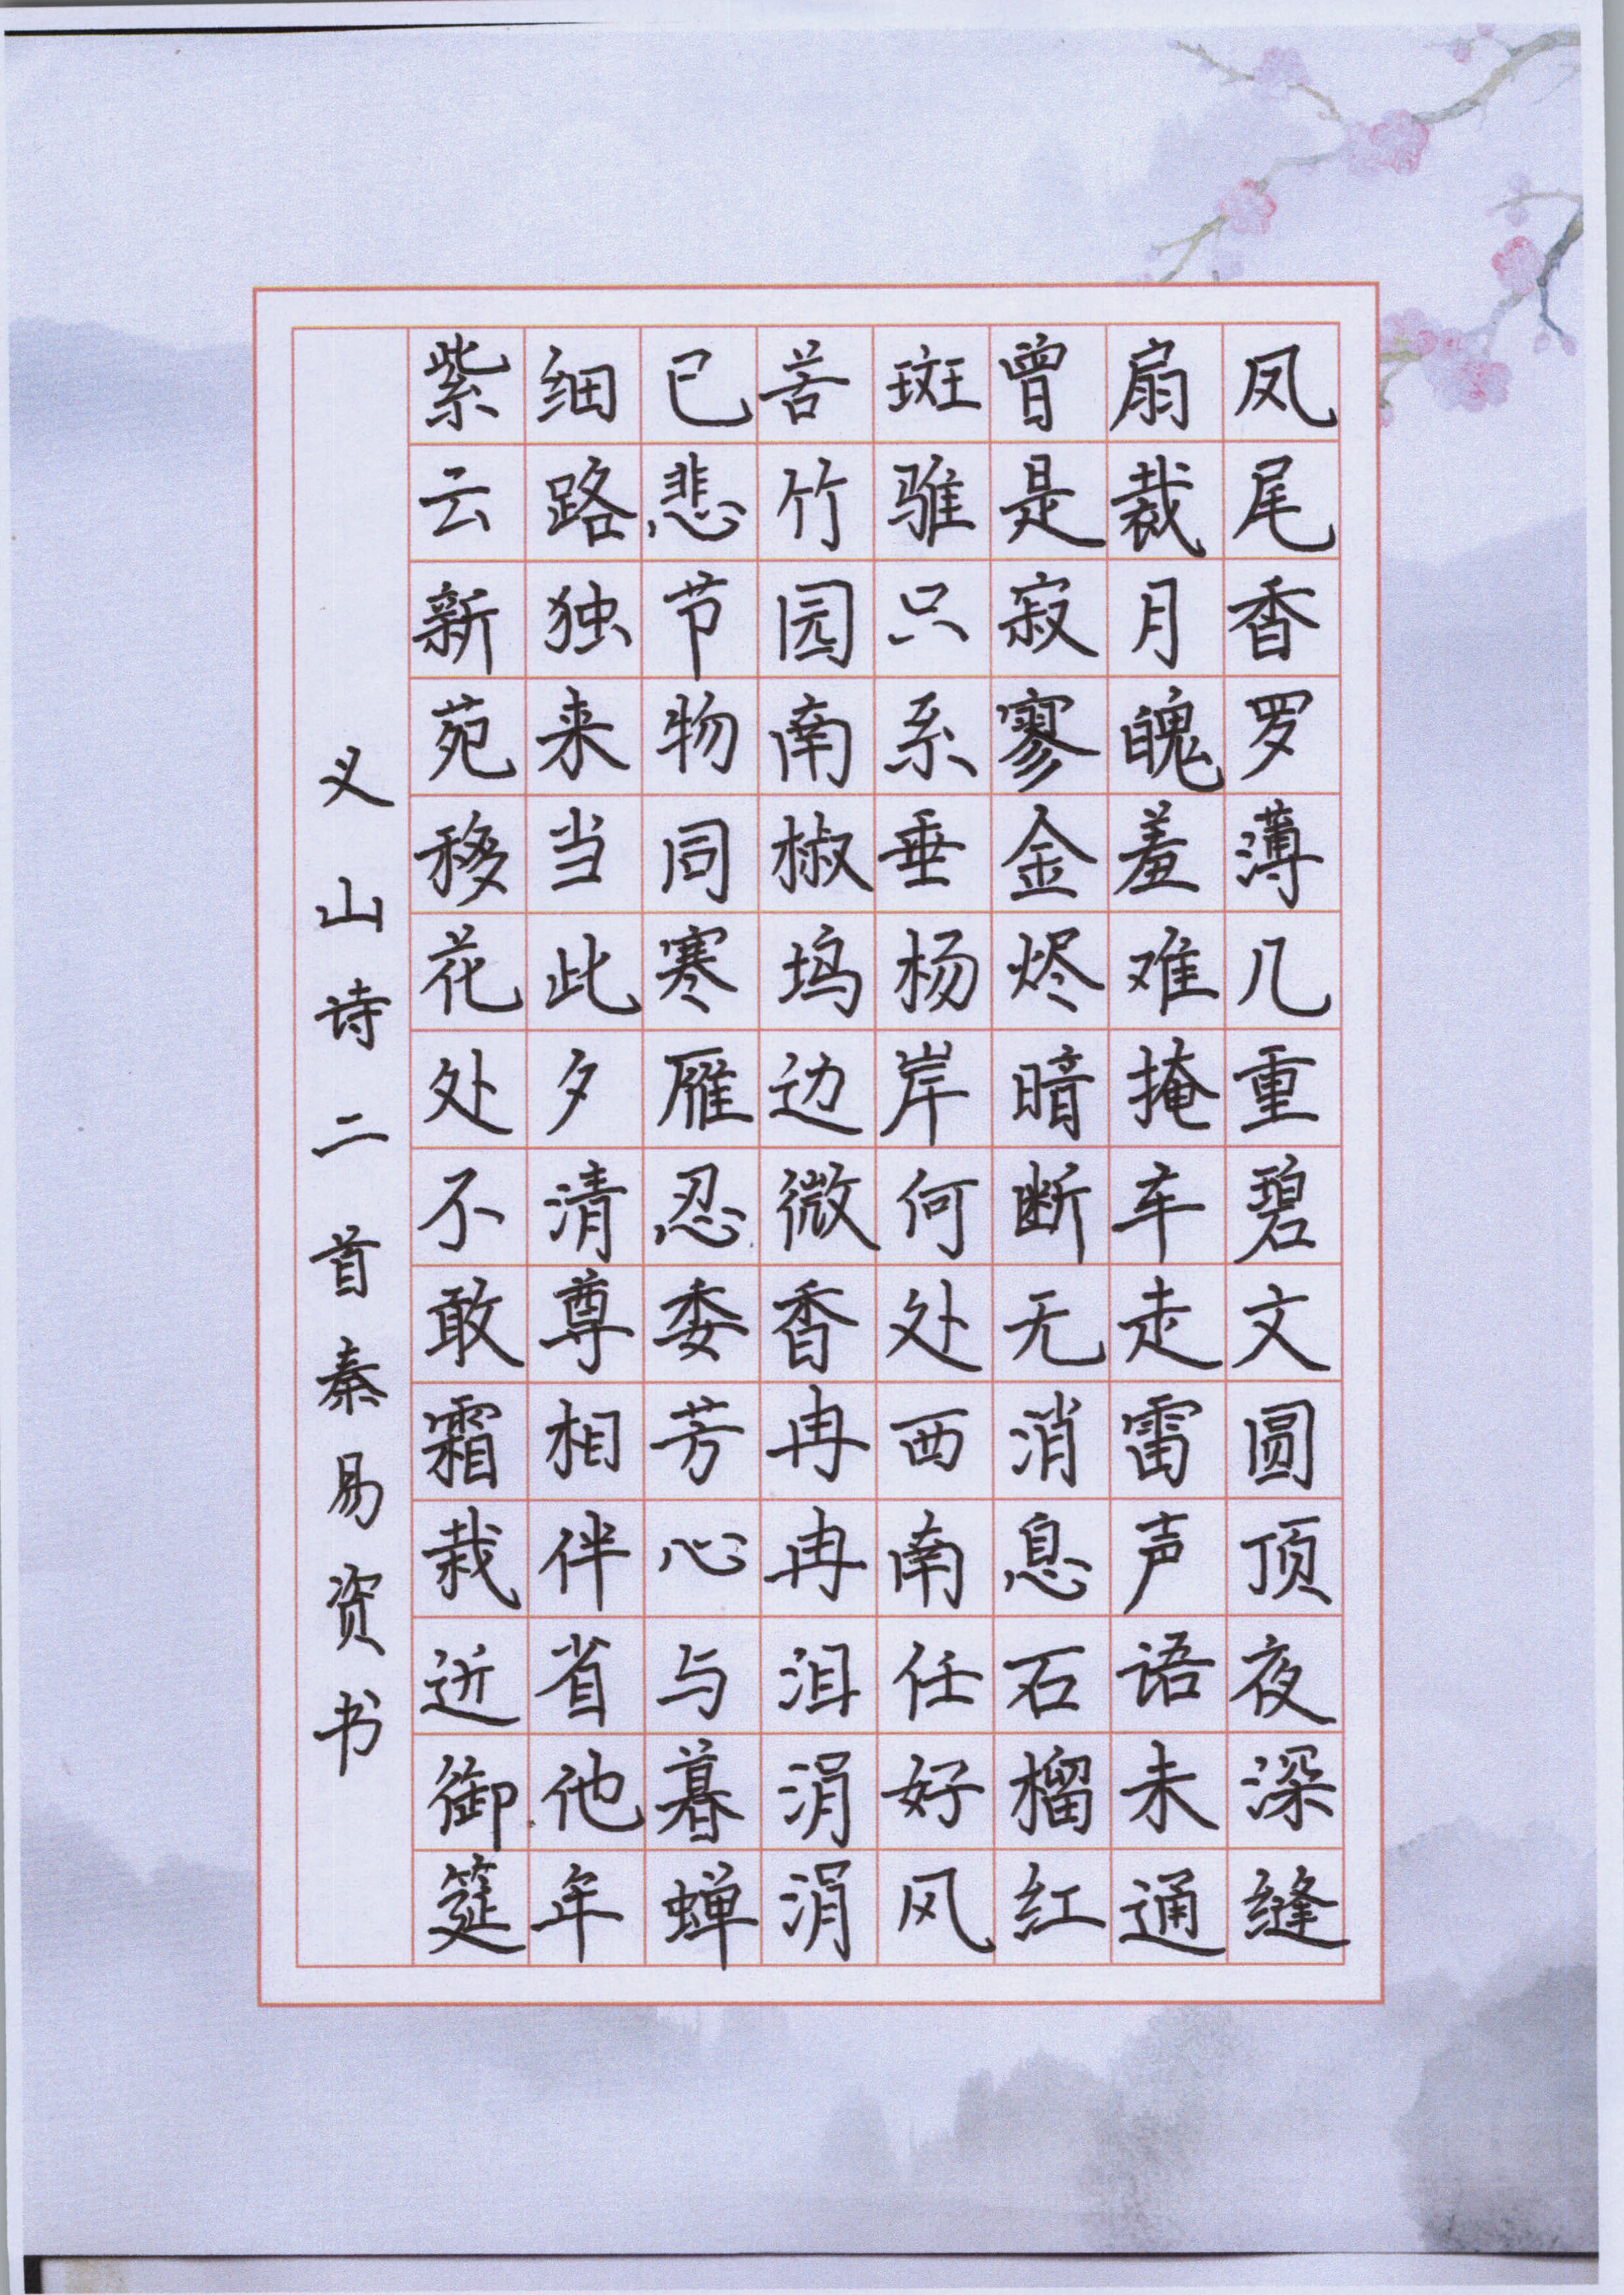 凤尾香罗薄几重碧文圆顶夜深缝
扇裁月魄羞难掩车走雷声语未通
曾是寂寥金烬暗断无消息石榴红
斑骓只系垂杨岸何处西南任好风
苦竹园南椒坞边微香冉冉泪涓涓
已悲节物同寒雁忍委芳心与暮蝉
细路独来当此夕清尊相伴省他年
紫云新苑移花处不敢霜栽近御筵
义山诗二首秦易资书